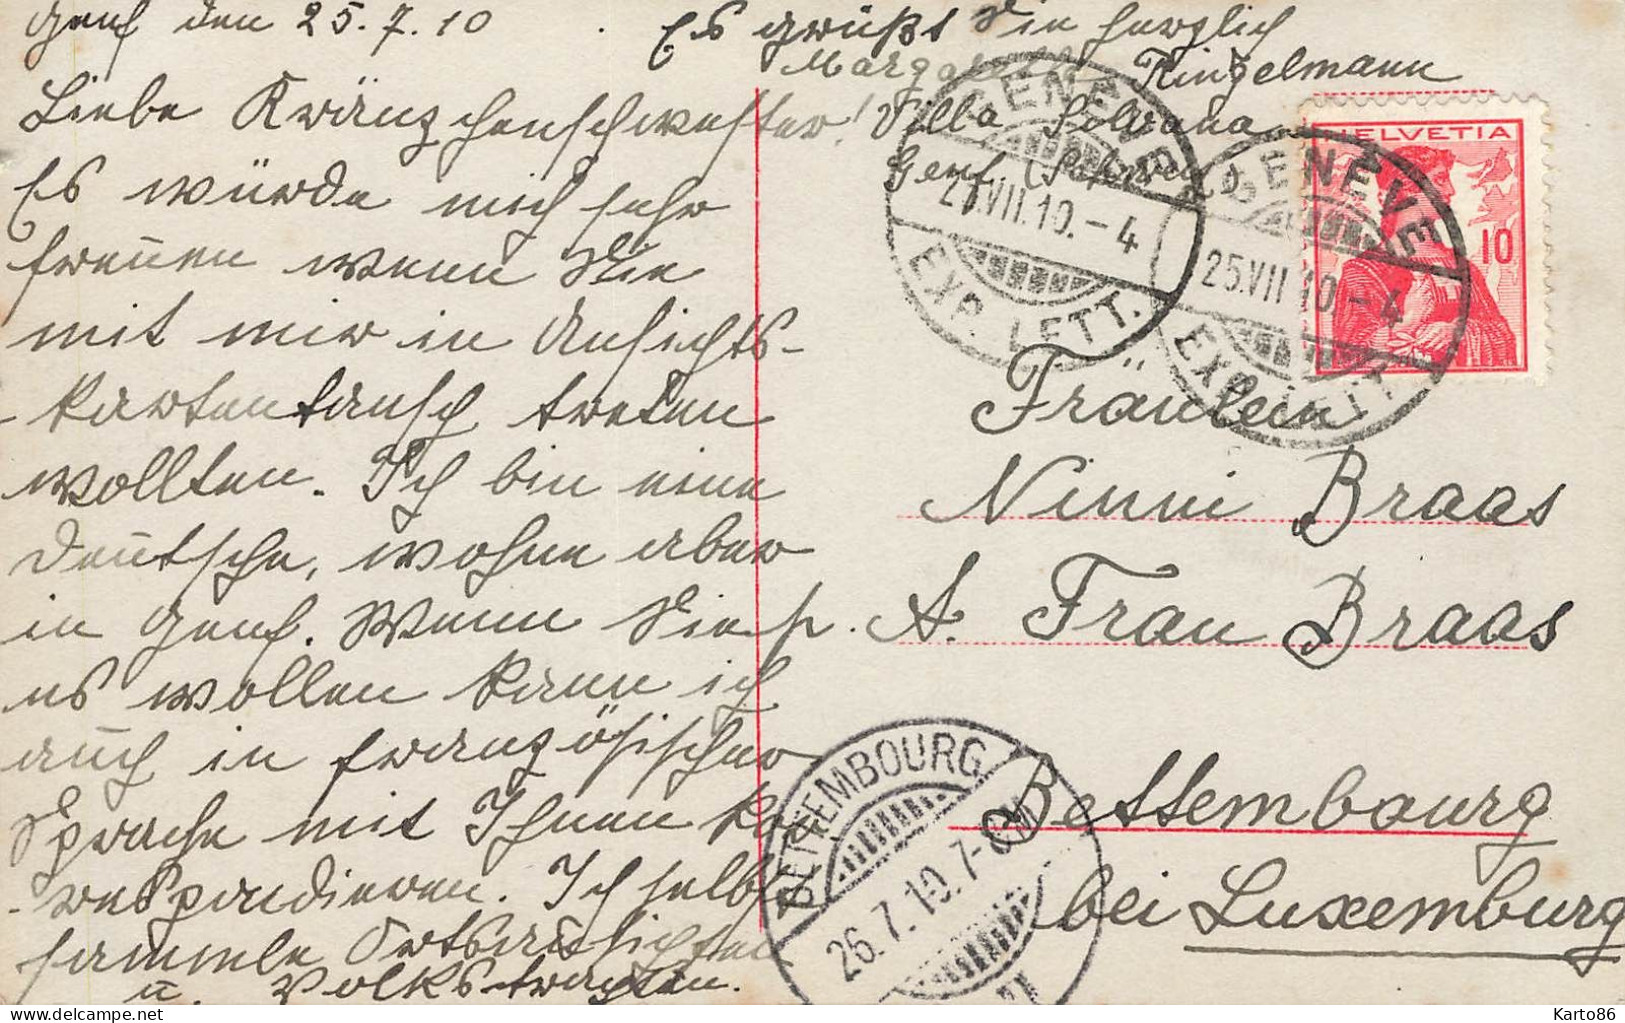 Genf den 25.7.10
Liebe Kränzchenschwester!
Es würde mich sehr
freuen wenn Sie
mit mir in Ansichts-
kartentausch treten
wollten. Ich bin eine
Deutsche, wohne aber
in Genf. Wenn Sie
es wollen kann ich
auch in französischer
Sprache mit Ihnen ko
respondieren. Ich selbst
sammle Ortsansichten
u. Volkstrachten.
Es grüßt Sie herzlich
Ringelmann
Villa Silvana
Genf (Schweiz)
GENÈVE
25.VII.10.-4
EXP. LETT.
GENÈVE
25.VII.10.-4
EXP. LETT.
HELVETIA
10
Fräulein
Ninni Braas
p. A. Frau Braas
Bettembourg
bei Luxemburg
BETTEMBOURG
26.7.10.7-8N
Karto86